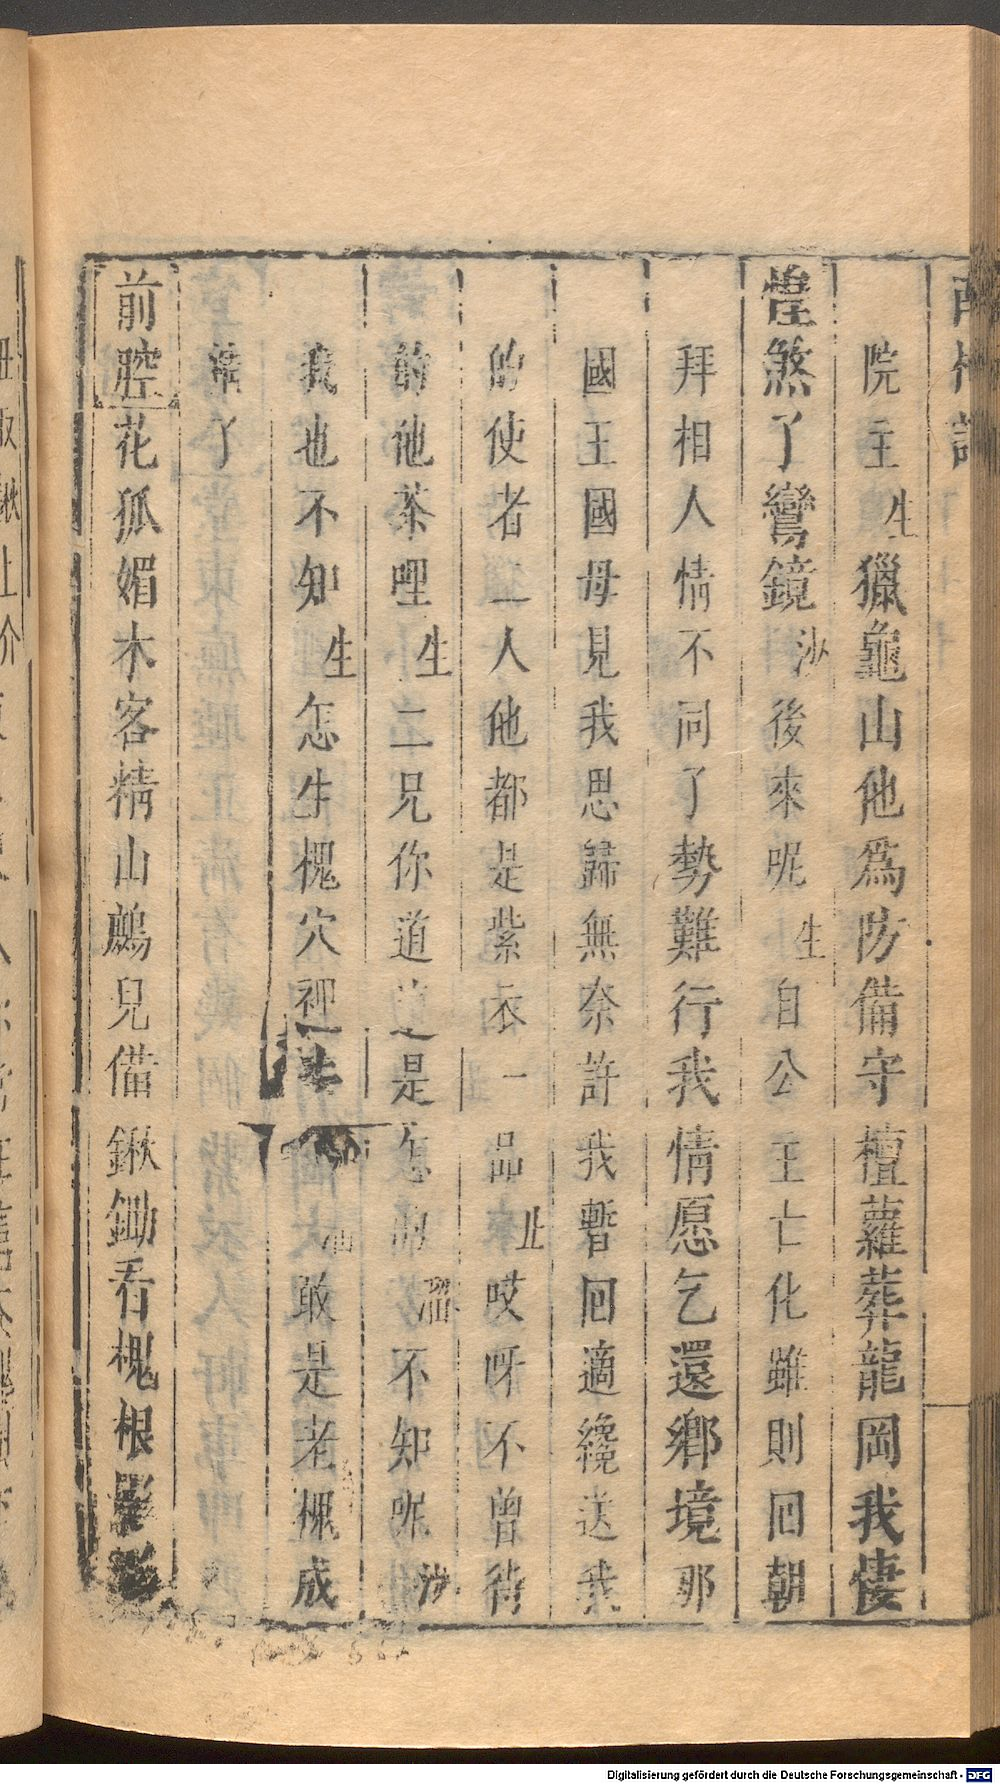 院主生獵龜山他爲防備守檀蘿葬龍岡我悽
惶煞了鸞鏡沙後來呢生自公主亡化雖則囘朝
拜相人情不同了勢難行我情愿乞還鄉境那
國王國母見我思歸無奈許我暫囘適纔送我
的使者二人他都是紫衣一品止哎呀不曾待
的他茶哩生二兄你道這是怎溜不知呢沙
我也不知生怎生槐穴裡敢是老槐成
精了
前腔花狐媚木客精山鷓兒備鍬鋤看槐根
Digitalisierung gefördert durch die Deutsche Forschungsgemeinschaft - DFG